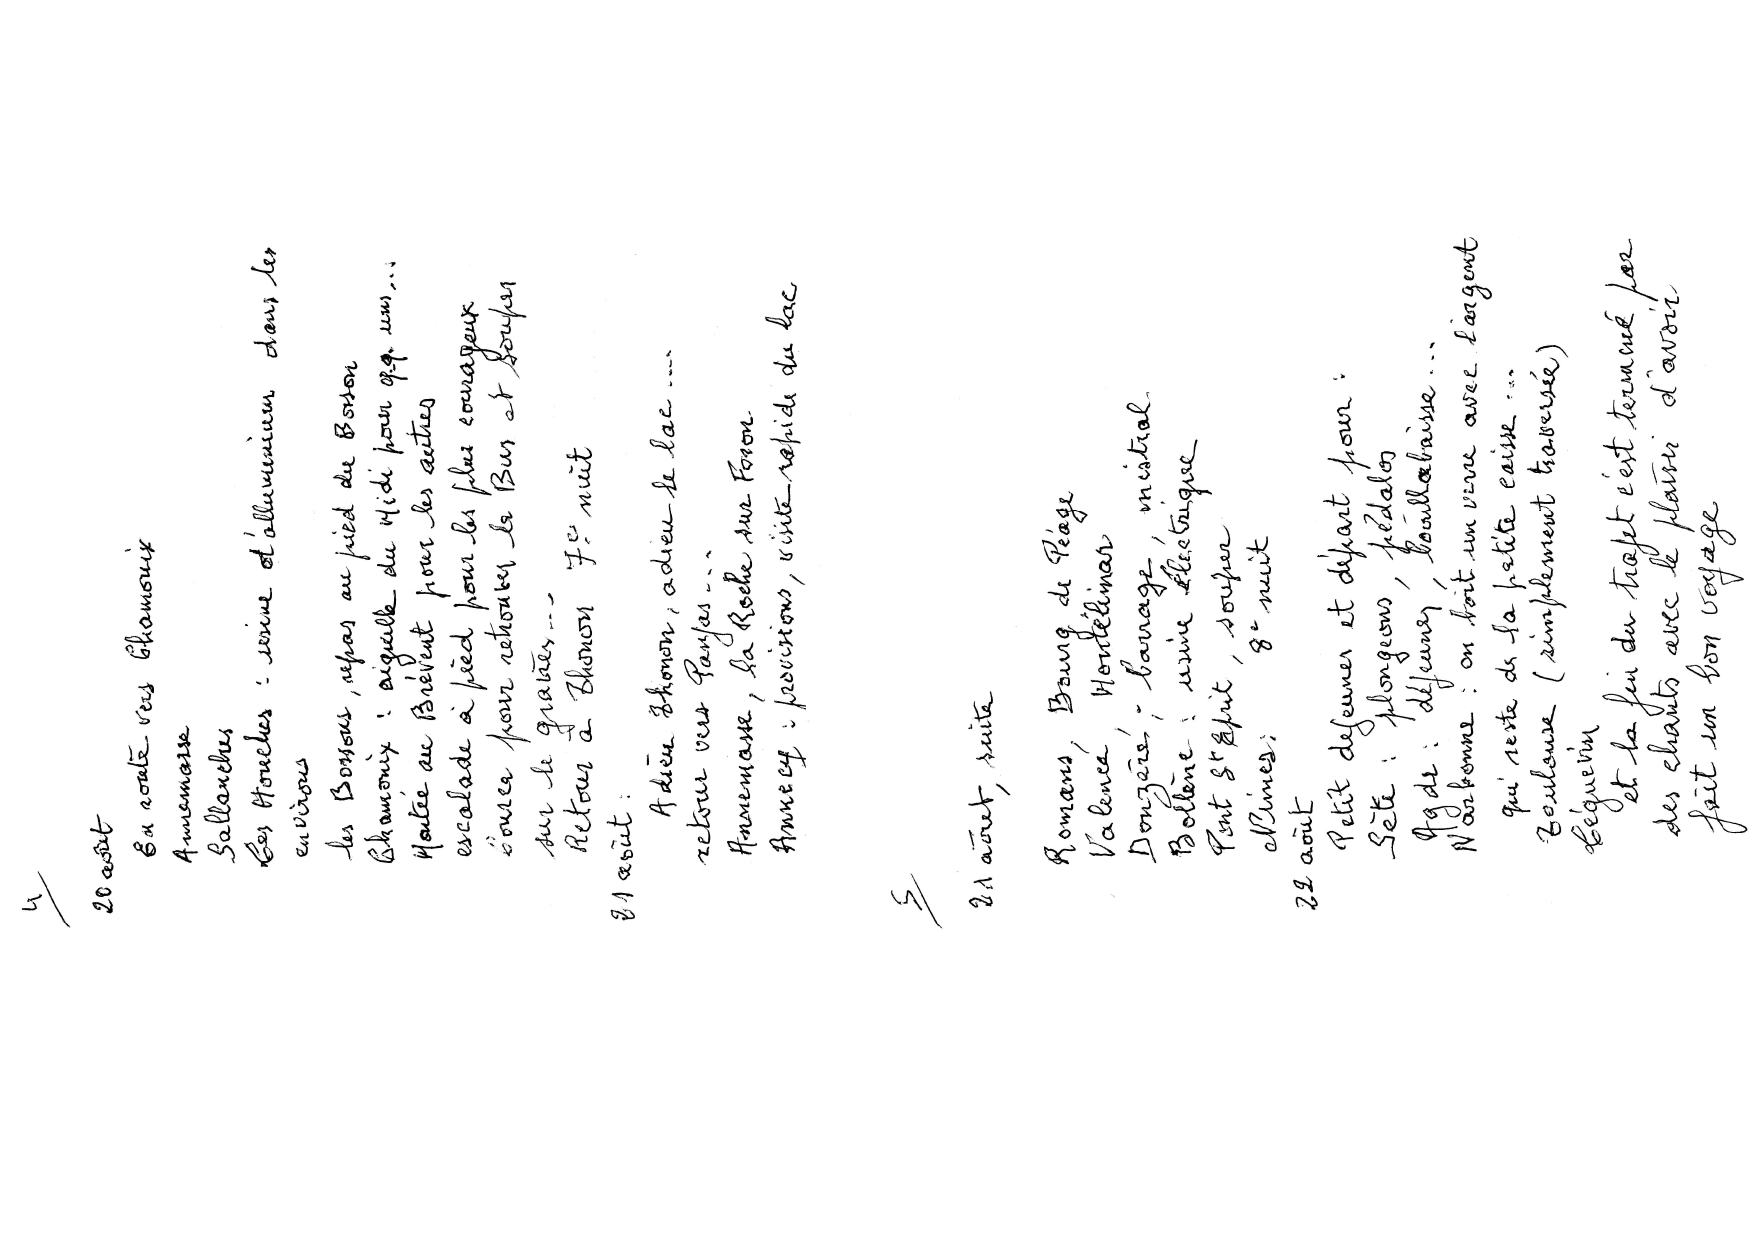 4/
20 août
En route vers Chamonix
Annemasse
Sallanches
Les Houches : usine d'alluminium dans les
environs
les Bossons, repas au pied du Bosson
Chamonix : aiguille du Midi pour q.q. uns...
Montée au Brévent pour les autres
escalade à pied pour les plus courageux
course pour retrouver le Bus et souper
sur le gravier...
Retour à Thonon 7e nuit
21 août :
Adieu Thonon, adieu le lac....
retour vers Panjas...
Annemasse, la Roche sur Foron
Annecy : provisions, visite rapide du lac
5/
21 août, suite
Romans, Bourg de Péage
Valence, Montélimar
Donzère, - barrage, mistral
Bollène : usine électrique
Pont St Esprit, souper
Nîmes : 8e nuit
22 août
Petit dejeuner et départ pour :
Sète : plongeons, pédalos
Agde : déjeuner, bouillabaisse...
Narbonne : on boit un verre avec l'argent
qui reste de la petite caisse...
Toulouse (simplement traversée)
Léguevin
et la fin du trajet s'est terminé par
des chants avec le plaisir d'avoir
fait un bon voyage